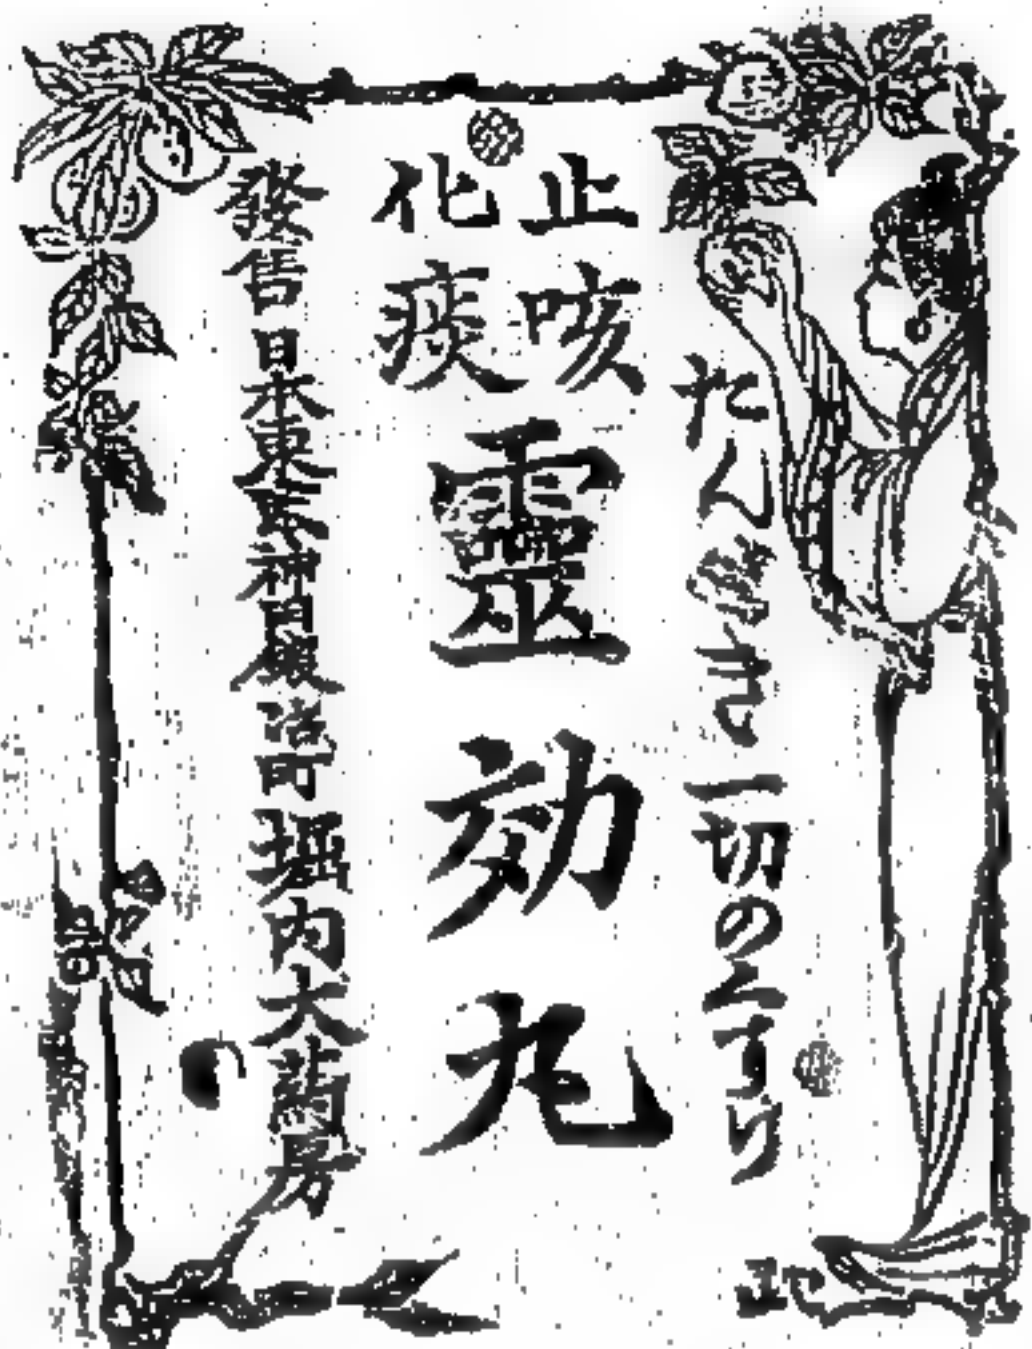 たんき一切のくすり
止咳
化痰
靈効丸
發售日本東京神田鍛冶町堀内大藥房